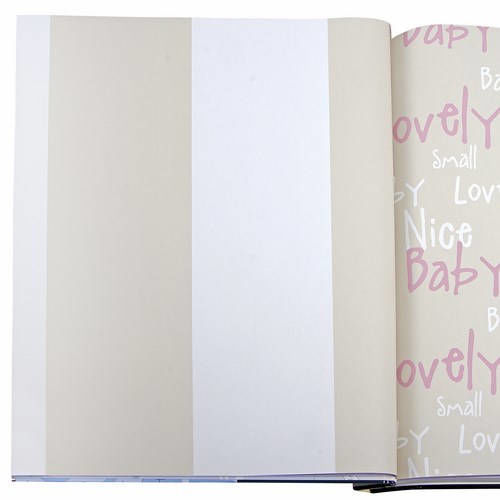 Baby
Ba
Lovely
Small
by Lov
Nice
Baby
B
Lovely
Small
by Lov
Nice